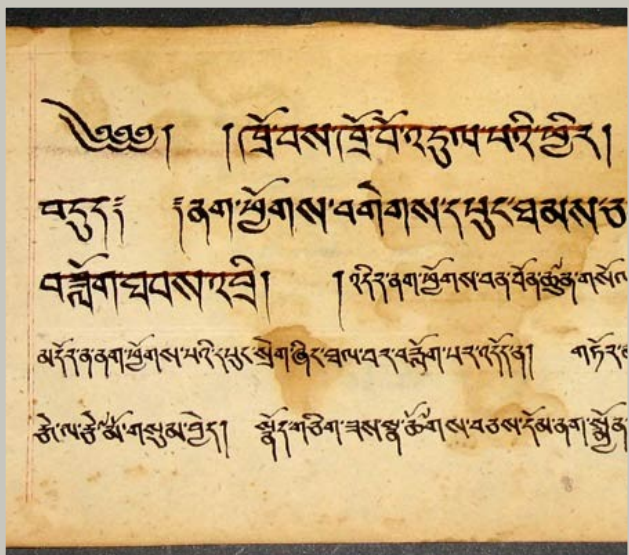 ༄༅༅། །ཁྲོ་བས་ཁྲོ་བོ་འདུལ་པའི་ཕྱིར།
བདུད་ ནག་ཕྱོགས་བགེགས་དཔུང་ཐམས་ཅ
བཟློག་ཐབས་འབྲི། །འདིར་ནག་ཕྱོགས་བན་བོན་
མདོར་ན་ནག་ཕྱོགས་པའི་དཔུང་སྲེག་ཞིང་ཐལ་བར་བཟློག་པར་འདོད་ན། གཏོར་མ
རྩེ་ལ་རྩེ་མོ་གསུམ་བྱེད། སྣོད་གཅིག་ཟས་སྣ་ཚོགས་བཅས་དོམ་ནག་